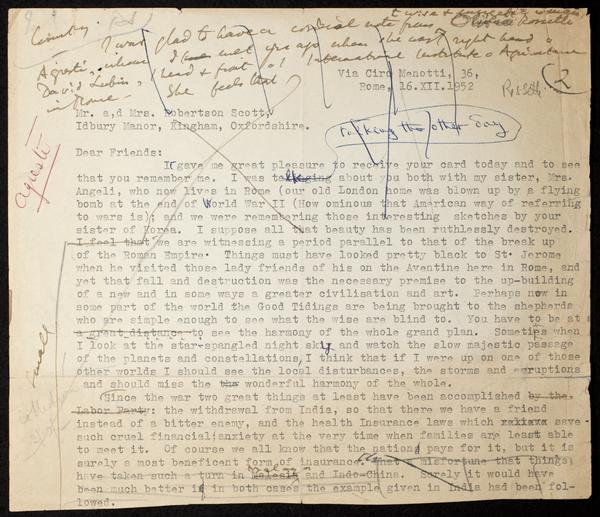 Country.
I was glad to have a cordial note from Olivia Rossetti
Agresti, whom I met yrs ago when she was right hand to
David Lubin, head & front of International Institute of Agriculture
in Rome. She feels that
Via Ciro Menotti, 36,
Rome, 16.XII.1952
2
Mr. a,d Mrs. Robertson Scott,
Idbury Manor, Kingham, Oxfordshire.
talking the other day
Agresti
Dear Friends:
It gave me great pleasure to receive your card today and to see
that you remember me. I was talking about you both with my sister, Mrs.
Angeli, who now lives in Rome (our old London home was blown up by a flying
bomb at the end of World War II (How ominous that American way of referring
to wars is); and we were remembering those interesting sketches by your
sister of Korea. I suppose all that beauty has been ruthlessly destroyed.
I feel that we are witnessing a period parallel to that of the break up
of the Roman Empire. Things must have looked pretty black to St. Jerome
when he visited those lady friends of his on the Aventine here in Rome, and
yet that fall and destruction was the necessary premise to the up-building
of a new and in some ways a greater civilisation and art. Perhaps now in
some part of the world the Good Tidings are being brought to the shepherds
who are simple enough to see what the wise are blind to. You have to be at
a great distance to see the harmony of the whole grand plan. Sometims when
I look at the star-spangled night sky and watch the slow majestic passage
of the planets and constellations, I think that if I were up on one of those
other worlds I should see the local disturbances, the storms and eruptions
and should miss the wonderful harmony of the whole.
Small
(Since the war two great things at least have been accomplished by the
Labor Party: the withdrawal from India, so that there we have a friend
instead of a bitter enemy, and the health Insurance laws which save
such cruel financial anxiety at the very time when families are least able
to meet it. Of course we all know that the nation pays for it, but it is
surely a most beneficent form of insurance. What a misfortune that things
have taken such a turn in Malaya and Indo-China. Surely it would have
been much better if in both cases the example given in India had been fol-
lowed.